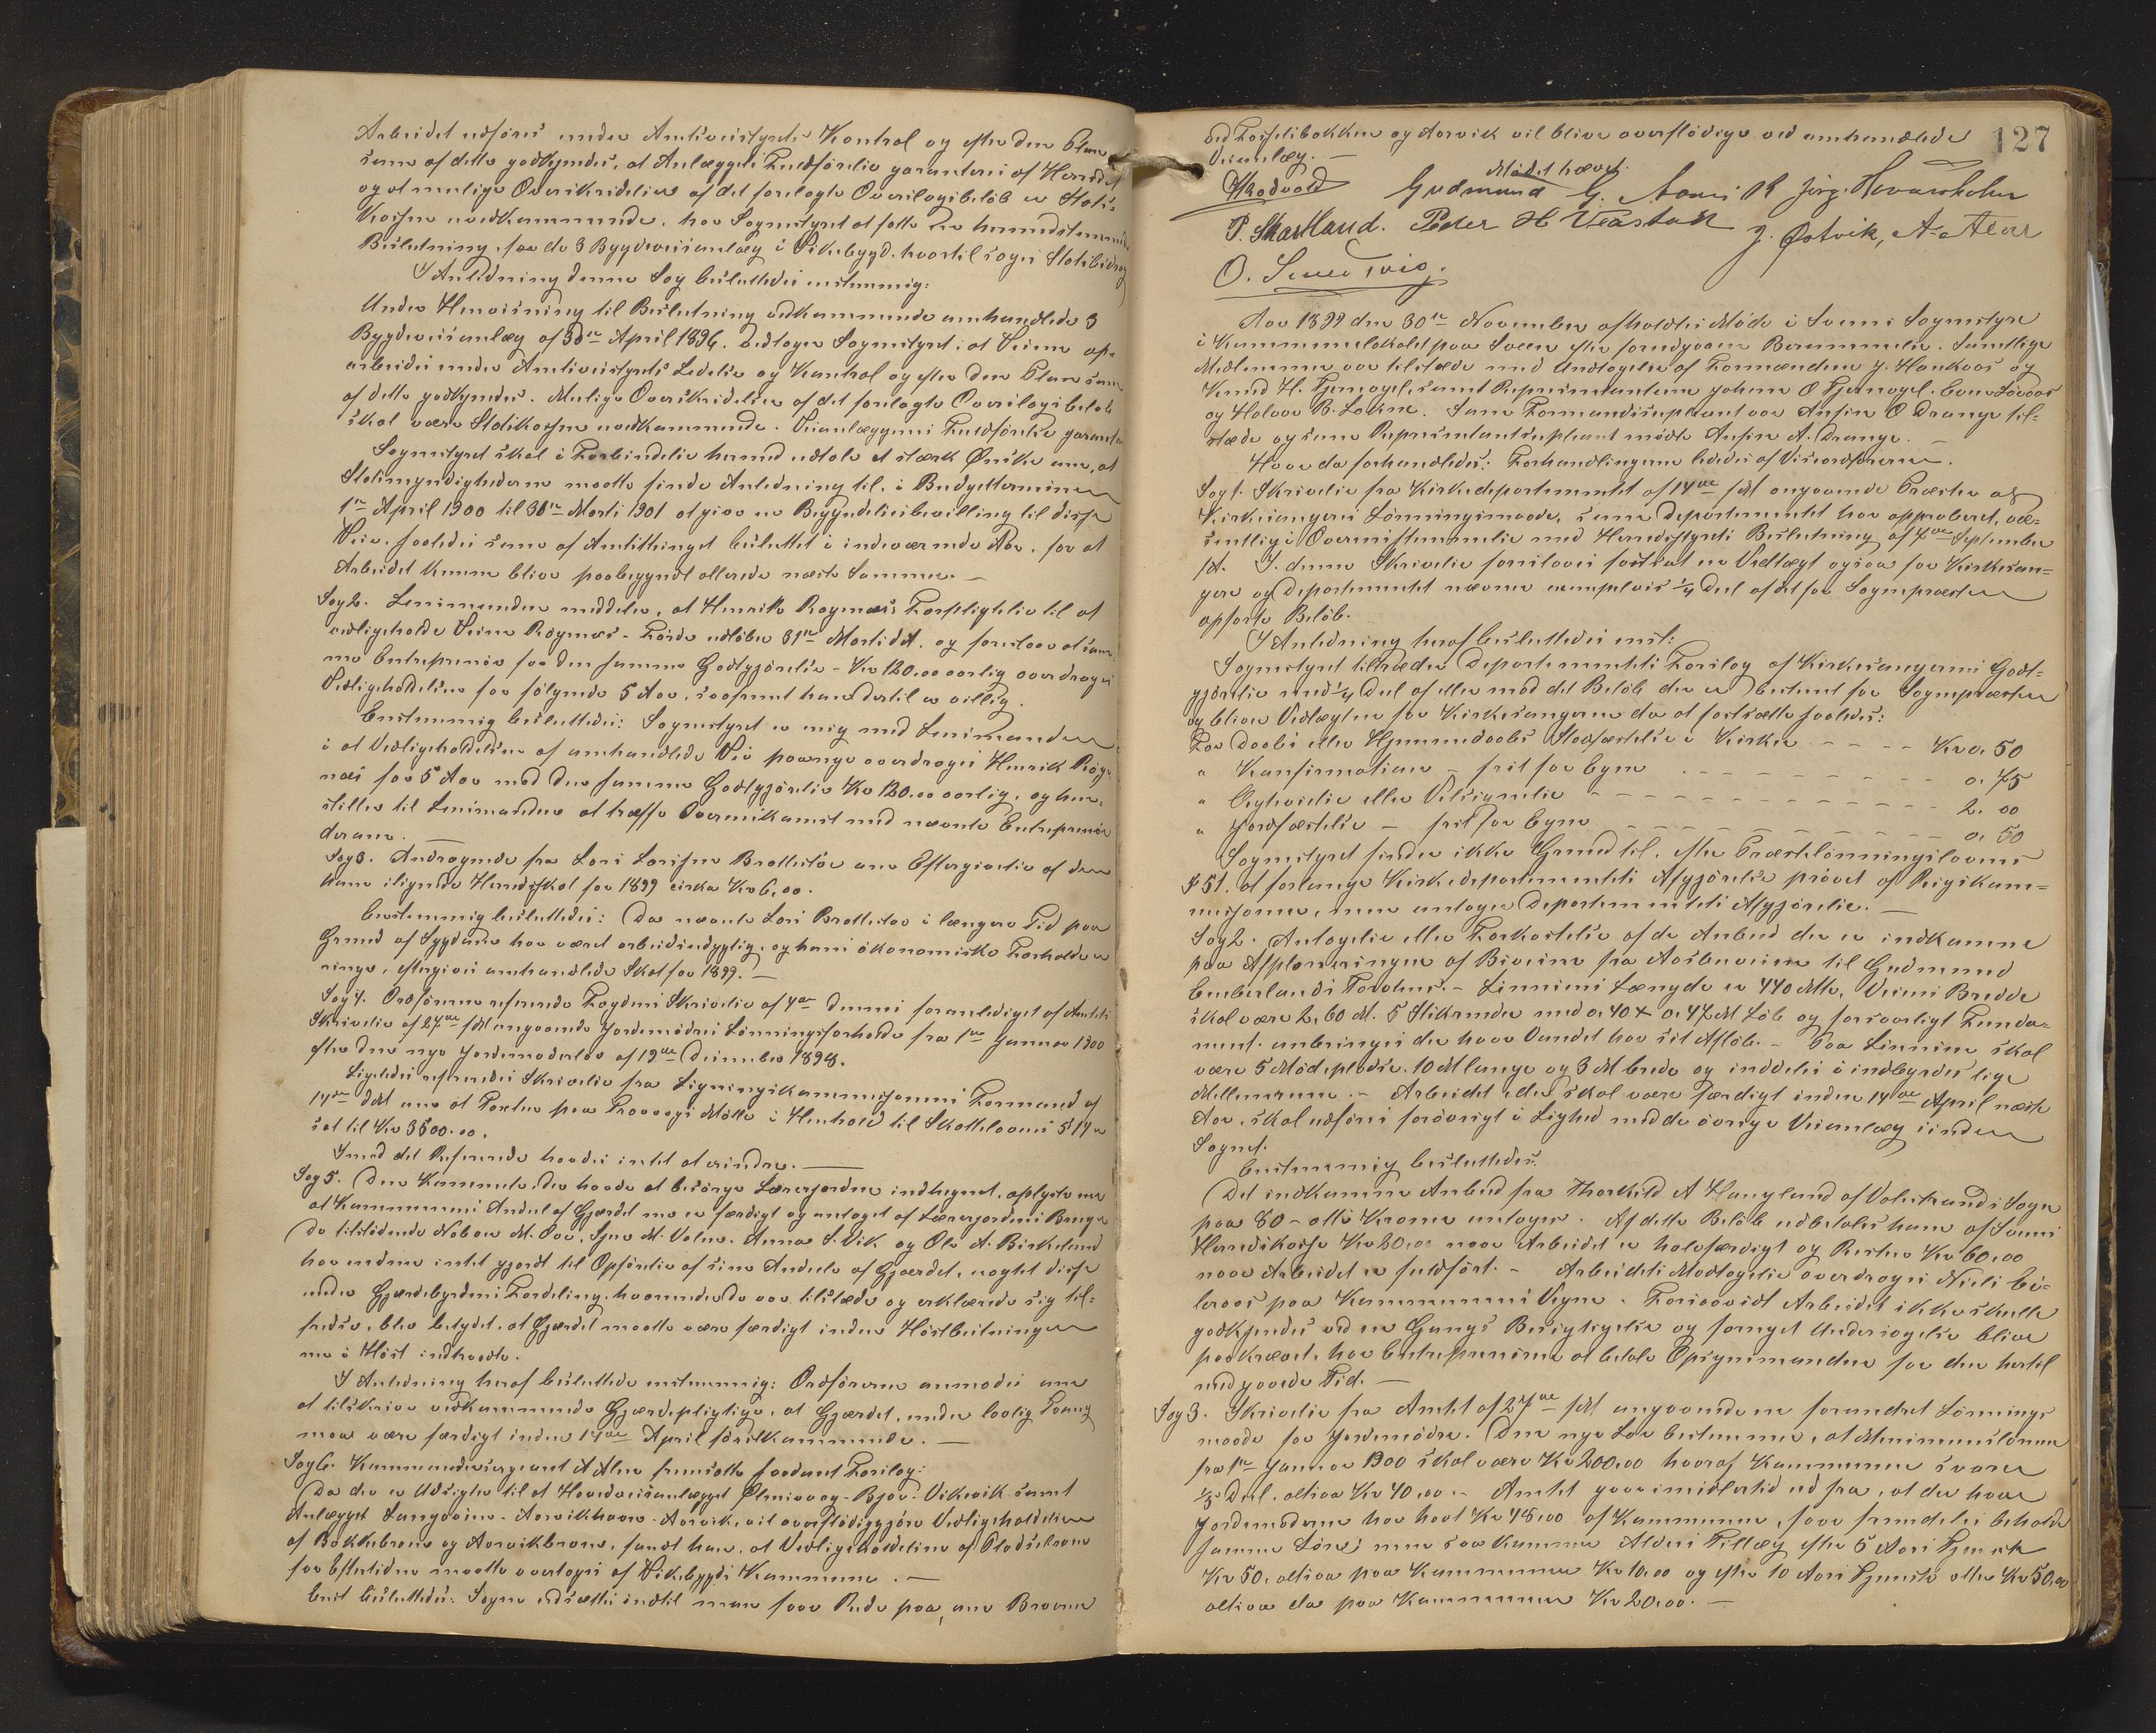 Arbeidet udføres under Amtsveistyrets Kontrol og efter den Plan
som af dette godkjendes, at Anlæggets Fuldførelse garanteres af Herredet
og at mulige Overskridelser af det forelagte Overslagsbeløb er Stats-
kassen uvedkommende, har Sognestyret at fatte en
Beslutning for de 3 Bygdeveisanlæg i Vikebygd, hvortil søges Statsbidrag
I Anledning denne Sag besluttedes enstemmig:
Under Henvisning til Beslutning vedkommende omhandlede 3
Bygdeveisanlæg af 30te April 1896, vedtager Sognestyret, at Veiene op-
arbeides under Amtsveistyrets Ledelse og Kontrol og efter den Plan som
af dette godkjendes. Mulige Overskridelser af det forelagte Overslagsbeløb
skal være Statskassen uvedkommende. Veianlæggenes Fuldførelse garanteres
Sognestyret skal i Forbindelse hermed udtale et stærkt Ønske om, at
Statsmyndighederne maatte finde Anledning til, i Budgetterminen
1te April 1900 til 31te Marts 1901 at give en Begyndelsesbevilling til disse
Veie, saaledes som af Amtsthinget besluttet i indeværende Aar, for at
Arbeidet kunne blive paabegyndt allerede næste Sommer. –
Sag 2. Lensmanden meddeler, at Henrik Røgenæs's Forpligtelse til at
vedligeholde Veien Røgenæs - Førde udløber 31te Marts d.A. og foreslaar at sam-
me Entreprenør for den samme Godtgjørelse - Kr 120.00 aarlig overdrages
Vedligeholdelsen for følgende 5 Aar, saafremt han dertil er villig.
Enstemmig besluttedes: Sognestyret er enig med Lensmanden
i at Vedligeholdelsen af omhandlede Vei paany overdrages Henrik Røge-
næs for 5 Aar mod den samme Godtgjørelse Kr 120.00 aarlig, og hen-
stiller til Lensmanden at træffe Overenskomst med nævnte Entreprenør
derom. –
Sag 3. Andragende fra Lars Larsen Brattestøe om Eftergivelse af den
ham ilignede Herredsskat for 1899 cirka Kr 6.00.
Enstemmig besluttedes: Da nævnte Lars Brattestøe i længere Tid paa
Grund af Sygdom har været arbeidsudygtig, og hans økonomiske Forholde er
ringe, eftergives omhandlede Skat for 1899. –
Sag 4. Ordføreren refererede Fogdens Skrivelse af 4de dennes foranlediget af Amtets
Skrivelse af 27de f.M. angaaende Jordemødres Lønningsforholde fra 1ste Januar 1900
efter den nye Jordemoderlov af 19de December 1898.
Ligeledes refereredes Skrivelse fra Ligningskommissionens Formand af
14de d.M. om at Taxten paa Traavaags Mølle i Henhold til Skatteloven § 17 er
sat til Kr 3500.00.
Imod det Refererede havdes intet at erindre. –
Sag 5. Den Kommite, der havde at besørge Lærerjorden indhegnet, oplyste om
at Kommunens Andel af Gjærdet nu er færdigt og antaget af Lærerjordens Bruger
Da tilstødende Naboer M. Aae, Jens M. Valen, Anna S. Vik og Ole A. Birkeland
har endnu intet gjordt til Opførelse af sine Andele af Gjærdet, uagtet disse
under Gjærdebyrdens Fordeling, hvorunder de var tilstæde og erklærede sig til-
fredse, blev betydet, at Gjærdet maatte være færdigt inden Høstbeitningen
nu i Høst indtraadte.
I Anledning heraf besluttede enstemmig: Ordføreren anmodes om
at tilskrive vedkommende Gjærdepligtige, at Gjærdet, under lovlig Tvang
maa være færdigt inden 14de April førstkommende. –
Sag 6. Kommandersergeant A. Alne fremsatte saadant Forslag:
Da der er Udsigter til at Hovedveisanlægget Ølensvaag - Bjoe - Vikevik samt
Anlægget Langaasen - Aarvikhavn - Aarvik, vil overflødiggjøre Vedligeholdelsen
af Bakkebroen og Aarvikbroen, fandt han, at Vedligeholdelsen af
for Eftertiden maatte overtages af Vikebygds Kommune. –
Enst besluttedes: Sagen udsættes indtil man faar Rede paa, om Broerne

127
ved Fosselibakken og Aarvik vil blive overflødige ved omhandlede
Veianlæg. –
Mødet hævet.
Gudmund G. Aarvik Jørg. Hovarsholm
P. Skartland. Peder H Veastad J. Østvik, A. Alne
O. Svendsvig.
Aar 1899 den 30te November afholdtes Møde i Sveens Sognestyre
i Kommunelokalet paa Sveen efter foregaaende Berammelse. Samtlige
Medlemmer var tilstæde med Undtagelse af Formændene J. Haukaas og
Knud H. Tjernagel, samt Repræsentanterne Johan O Tjernagel, Even Løvaas
og Halvor B. Lokne. Som Formandssuppleant var Ansten O Drange til-
stæde og som Repræsentantsuppleant mødte Ansten A. Drange. –
Hvor da forhandledes: Forhandlingerne lededes af Viseordføreren.
Sag 1. Skrivelse fra Kirkedepartementet af 14de f.M. angaaende Præsters og
Kirkesangeres Lønningsmaade, som Departementet har approberet, væ-
sentlig i Overensstemmelse med Herredsstyrets Beslutning af 7de September
f.A. I denne Skrivelse foreslaaes fastsat en Vedtægt ogsaa for Kirkesan-
gere og Departementet nævner exempelvis ¼ Del af det for Sognepræsten
opførte Beløb.
I Anledning heraf besluttedes enst:
Sognestyret tiltræder Departementets Forslag af Kirkesangerens Godt-
gjørelse med ¼ Del af eller mod det Beløb der er bestemt for Sognepræsten
og bliver Vedtægten for Kirkesangeren da at fastsætte saaledes:
For Daab i eller Hjemmedaabs Stadfæstelse i Kirken - - - - Kr 0.50
" Konfirmation – frit for Egne - - - - - - - - 0.75
" Ægtevielse eller Velsignelse - - - - - - - - 2.00
" Jordfæstelse – frit for Egne - - - - - - - - 0.50
Sognestyret finder ikke Grund til, efter Præstelønningslovens
§ 51, at forlange Kirkedepartementets Afgjørelse prøvet af Rigskom-
missionen, men antager Departementets Afgjørelse. –
Sag 2. Antagelse eller Forkastelse af de Anbud der er indkomne
paa Afplaneringen af Biveien fra Aasbuveien til Gudmund
Emberlands Vaaning. – Linniens Længde er 440 Mtr, Veiens Bredde
skal være 2,60 M. 5 Stikrender med 0.40 × 0.47 M Løb og forsvarligt Funda-
ment anbringes der hvor Vandet har sit Afløb. – Paa Linnien skal
være 5 Mødepladse, 10 M lange og 3 M brede og inddeles i indbyrdes lige
Mellemrum. – Arbeidet, der skal være færdigt inden 14de April næste
Aar, skal udføres forøvrigt i Lighed med de øvrige Veianlæg inden
Sognet.
Enstemmig besluttedes:
Det indkomne Anbud fra Thorkild A Haugland af Valestrands Sogn
paa 80 – otti Kroner antages. Af dette Beløb udbetales ham af Sveens
Herredskasse Kr 20.00 naar Arbeidet er halvfærdigt og Resten Kr 60.00
naar Arbeidet er fuldført. – Arbeidets Modtagelse overdrages Niels Ei-
leraas paa Kommunens Vegne. Forsaavidt Arbeidet ikke skulle
godkjendes ved en Gangs Besigtigelse og fornyet Undersøgelse bliver
paakrævet, har Entreprenøren at betale Opsynsmanden for den hertil
medgaaede Tid. –
Sag 3. Skrivelse fra Amtet af 27de f.M. angaaende en forandret Lønnings-
maade for Jordemødre. Den nye Lov bestemmer, at Minimumslønnen
fra 1ste Januar 1900 skal være Kr 200.00 hvoraf Kommunen svarer
1/5 Del, altsaa Kr 40.00. – Amtet gaar imidlertid ud fra, at der hvor
Jordemoderen har havt Kr 48.00 af Kommunen, faar fremdeles beholde
samme Løn; men saa kommer Alders Tillæg efter 5 Aars Tjeneste
Kr 50, altsaa paa Kommunen Kr 10.00 og efter 10 Aars Tjeneste atter Kr 50.00
altsaa da paa Kommunen Kr 20.00. –